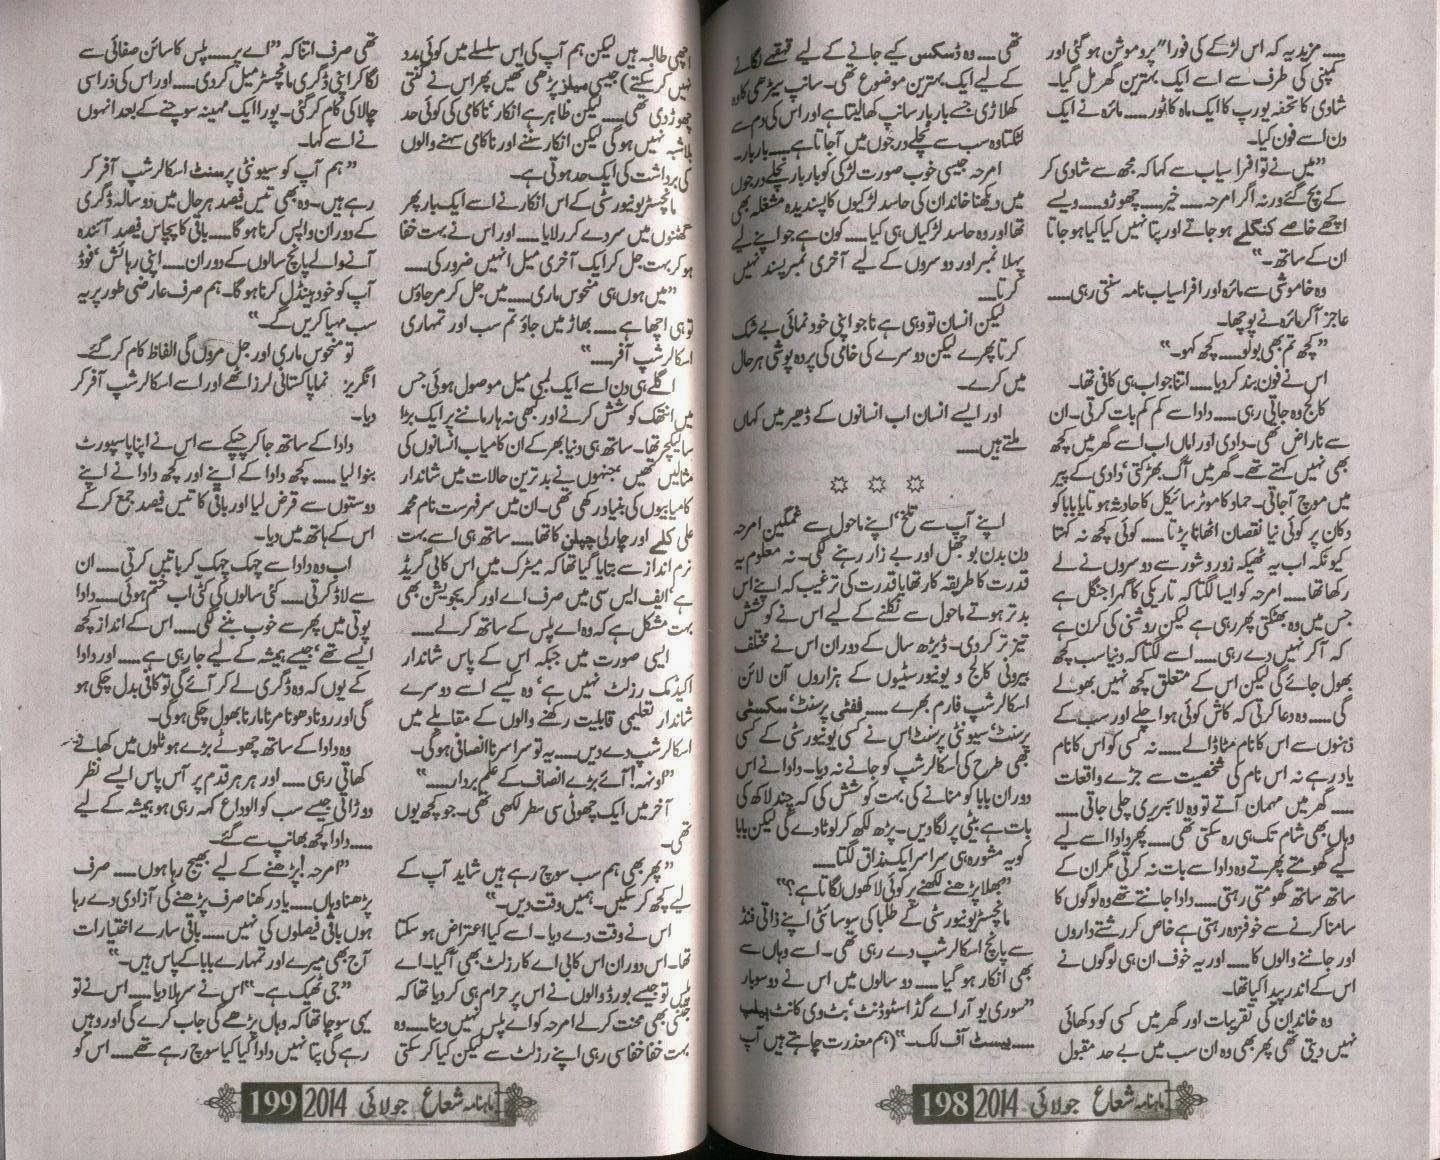 ..... مزید یہ کہ اس لڑکے کی فورا" پروموشن ہو گئی اور
کمپنی کی طرف سے اسے ایک بہترین گھر مل گیا۔
شادی کا تحفہ یورپ کا ایک ماہ کا ٹور..... مائرہ نے ایک
دن اسے فون کیا۔
"میں نے تو افراسیاب سے کہا کہ مجھ سے شادی کر
کے بچ گئے ورنہ اگر امرحہ..... خیر..... چھوڑو..... ویسے
اچھے خاصے کنگلے ہو جاتے اور پتا نہیں کیا کیا ہو جاتا
ان کے ساتھ۔"
وہ خاموشی سے مائرہ اور افراسیاب نامہ سنتی رہی.....
عاجز آ کر مائرہ نے پوچھا۔
"کچھ تم بھی بولو..... کچھ کہو۔"
اس نے فون بند کر دیا..... اتنا جواب ہی کافی تھا۔
کالج وہ جاتی رہی..... دادا سے کم کم بات کرتی۔ ان
سے ناراض تھی۔ دادی اور اماں اب اسے گھر میں کچھ
بھی نہیں کہتے تھے۔ گھر میں آگ بھڑکتی' دادی کے پیر
میں موچ آجاتی۔ حماد کا موٹر سائیکل کا حادثہ ہوتا یا بابا کو
دکان پر کوئی نیا نقصان اٹھانا پڑتا..... کوئی کچھ نہ کہتا
کیونکہ اب یہ ٹھیکہ زور و شور سے دوسروں نے لے
رکھا تھا..... امرحہ کو ایسا لگتا کہ تاریکی کا گہرا جنگل ہے
جس میں وہ بھٹکتی پھر رہی ہے لیکن روشنی کی کرن ہے
کہ آ کر نہیں دے رہی..... اسے لگتا کہ دنیا سب کچھ
بھول جائے گی لیکن اس کے متعلق کچھ نہیں بھولے
گی..... وہ دعا کرتی کہ کاش کوئی ہوا چلے اور سب کے
ذہنوں سے اس کا نام مٹا ڈالے..... نہ کسی کو اس کا نام
یاد رہے نہ اس نام کی شخصیت سے جڑے واقعات
..... گھر میں مہمان آتے تو وہ لائبریری چلی جاتی.....
وہاں بھی شام تک ہی رہ سکتی تھی..... پھر دادا اسے لیے
لیے گھومتے پھرتے وہ دادا سے بات نہ کرتی مگر ان کے
ساتھ ساتھ گھومتی رہتی..... دادا جانتے تھے وہ لوگوں کا
سامنا کرنے سے خوفزدہ رہتی ہے خاص کر رشتے داروں
اور جاننے والوں کا..... اور یہ خوف ان ہی لوگوں نے
اس کے اندر پیدا کیا تھا۔
وہ خاندان کی تقریبات اور گھر میں کسی کو دکھائی
نہیں دیتی تھی پھر بھی وہ ان سب میں بے حد مقبول
تھی..... وہ ڈسکس کیے جانے کے لیے قہقہے لگانے
کے لیے ایک بہترین موضوع تھی۔ سانپ سیڑھی کا وہ
کھلاڑی جسے بار بار سانپ کھا لیتا ہے اور اس کی دم سے
لٹکتا وہ سب سے نچلے درجوں میں آجاتا ہے..... بار بار۔
امرحہ جیسی خوب صورت لڑکی کو بار بار نچلے درجوں
میں دیکھنا خاندان کی حاسد لڑکیوں کا پسندیدہ مشغلہ بھی
تھا اور وہ حاسد لڑکیاں ہی کیا..... کون ہے جو اپنے لیے
پہلا نمبر اور دوسروں کے لیے آخری نمبر پسند نہیں
کرتا.....
لیکن انسان تو وہی ہے نا جو اپنی خود نمائی بے شک
کرتا پھرے لیکن دوسرے کی خامی کی پردہ پوشی ہر حال
میں کرے۔
اور ایسے انسان اب انسانوں کے ڈھیر میں کہاں
ملتے ہیں.....
اپنے آپ سے تلخ' اپنے ماحول سے غمگین امرحہ
دن بدن بوجھل اور بے زار رہنے لگی۔ نہ معلوم یہ
قدرت کا طریقہ کار تھا یا قدرت کی ترغیب کہ اپنے اس
بدتر ہوتے ماحول سے نکلنے کے لیے اس نے کوشش
تیز تر کر دی۔ ڈیڑھ سال کے دوران اس نے مختلف
بیرونی کالج و یونیورسٹیوں کے ہزاروں آن لائن
اسکالرشپ فارم بھرے..... ففٹی پرسنٹ' سکسٹی
پرسنٹ' سیونٹی پرسنٹ اس نے کسی یونیورسٹی کے کسی
بھی طرح کی اسکالرشپ کو جانے نہ دیا۔ دادا نے اس
دوران بابا کو منانے کی بہت کوشش کی کہ چند لاکھ کی
بات ہے بیٹی پر لگا دیں۔ پڑھ لکھ کر لوٹا دے گی لیکن بابا
کو یہ مشورہ ہی سراسر ایک مذاق لگتا.....
"بھلا پڑھنے لکھنے پر کوئی لاکھوں لگاتا ہے؟"
مانچسٹر یونیورسٹی کے طلبا کی سوسائٹی اپنے ذاتی فنڈ
سے پانچ اسکالرشپ دے رہی تھی۔ اسے وہاں سے
بھی انکار ہو گیا..... دو سالوں میں اس نے دو سو بار
"سوری یو آر اے گڈ اسٹوڈنٹ' بٹ وی کانٹ ہیلپ
..... بیسٹ آف لک۔" (ہم معذرت چاہتے ہیں آپ
ماہنامہ شعاع جولائی 2014 198
اچھی طالبہ ہیں لیکن ہم آپ کی اس سلسلے میں کوئی مدد
نہیں کر سکتے) جیسی میلز پڑھی تھیں پھر اس نے گنتی
چھوڑ دی تھی..... لیکن ظاہر ہے انکار' ناکامی کی کوئی حد
بلاشبہ نہیں ہو گی لیکن انکار سننے اور ناکامی سہنے والوں
کی برداشت کی ایک حد ہوتی ہے۔
مانچسٹر یونیورسٹی کے اس انکار نے اسے ایک بار پھر
گھٹنوں میں سر دے کر رلایا..... اور اس نے بہت خفا
ہو کر بہت جل کر ایک آخری میل انہیں ضرور کی.....
"میں ہوں ہی منحوس ماری..... میں جل کر مر جاؤں
تو ہی اچھا ہے..... بھاڑ میں جاؤ تم سب اور تمہاری
اسکالرشپ آفر....."
اگلے ہی دن اسے ایک لمبی میل موصول ہوئی جس
میں انتھک کوشش کرنے اور کبھی نہ ہار ماننے پر ایک بڑا
سا لیکچر تھا۔ ساتھ ہی دنیا بھر کے ان کامیاب انسانوں کی
مثالیں تھیں' جنہوں نے بدترین حالات میں شاندار
کامیابیوں کی بنیاد رکھی تھی۔ ان میں سرفہرست نام محمد
علی کلے اور چارلی چپلن کا تھا..... ساتھ ہی اسے بہت
نرم انداز سے بتایا گیا تھا کہ میٹرک میں اس کا بی گریڈ
ہے' ایف ایس سی میں صرف اے اور گریجویشن بھی
بہت مشکل ہے کہ وہ اے پلس کے ساتھ کر لے.....
ایسی صورت میں جبکہ اس کے پاس شاندار
اکیڈمک رزلٹ نہیں ہے' وہ کیسے اسے دوسرے
شاندار تعلیمی قابلیت رکھنے والوں کے مقابلے میں
اسکالرشپ دے دیں..... یہ تو سراسر ناانصافی ہو گی۔
"اونہہ! آئے بڑے انصاف کے علم بردار....."
آخر میں ایک چھوٹی سی سطر لکھی تھی۔ جو کچھ یوں
تھی۔
"پھر بھی ہم سب سوچ رہے ہیں شاید آپ کے
لیے کچھ کر سکیں۔ ہمیں وقت دیں۔"
اس نے وقت دے دیا۔ اسے کیا اعتراض ہو سکتا
تھا۔ اس دوران اس کا بی اے کا رزلٹ بھی آگیا۔ اے
پلس تو جیسے بورڈ والوں نے اس پر حرام ہی کر دیا تھا کہ
جتنی بھی محنت کر لے امرحہ کو اے پلس نہیں دینا..... وہ
بہت خفا خفا سی رہی اپنے رزلٹ سے لیکن کیا کر سکتی
تھی صرف اتنا کہ "اے پر..... پلس کا سائن صفائی سے
لگا کر اپنی ڈگری مانچسٹر میل کر دی..... اور اس کی ذرا سی
چالاکی کام کر گئی۔ پورا ایک مہینہ سوچنے کے بعد انہوں
نے اسے کہا۔
"ہم آپ کو سیونٹی پرسنٹ اسکالرشپ آفر کر
رہے ہیں۔ وہ بھی تیس فیصد ہر حال میں دو سالہ ڈگری
کے دوران واپس کرنا ہو گا..... باقی کا پچاس فیصد آئندہ
آنے والے پانچ سالوں کے دوران..... اپنی رہائش' فوڈ
آپ کو خود ہینڈل کرنا ہو گا۔ ہم صرف عارضی طور پر یہ
سب مہیا کریں گے۔"
تو منحوس ماری اور جل مروں گی الفاظ کام کر گئے۔
انگریز نما پاکستانی لرز اٹھے اور اسے اسکالرشپ آفر کر
دیا۔
دادا کے ساتھ جا کر چپکے سے اس نے اپنا پاسپورٹ
بنوا لیا..... کچھ دادا کے اپنے اور کچھ دادا نے اپنے
دوستوں سے قرض لیا اور باقی کا تیس فیصد جمع کر کے
اس کے ہاتھ میں دیا۔
اب وہ دادا سے چہک چہک کر باتیں کرتی..... ان
سے لاڈ کرتی..... کئی سالوں کی کٹی اب ختم ہوئی..... دادا
پوتی میں پھر سے خوب بننے لگی..... اس کے انداز کچھ
ایسے تھے' جیسے ہمیشہ کے لیے جا رہی ہے..... اور دادا
کے یوں کہ وہ ڈگری لے کر آئے گی تو کافی بدل چکی ہو
گی اور رونا دھونا مرنا مارنا بھول چکی ہو گی۔
وہ دادا کے ساتھ چھوٹے بڑے ہوٹلوں میں کھانے
کھاتی رہی..... اور ہر ہر قدم پر آس پاس ایسے نظر
دوڑاتی جیسے سب کو الوداع کہہ رہی ہو ہمیشہ کے لیے
..... دادا کچھ بھانپ سے گئے۔
"امرحہ! پڑھنے کے لیے بھیج رہا ہوں..... صرف
پڑھنا وہاں..... یاد رکھنا صرف پڑھنے کی آزادی دے رہا
ہوں باقی فیصلوں کی نہیں..... باقی سارے اختیارات
آج بھی میرے اور تمہارے بابا کے پاس ہیں۔"
"جی ٹھیک ہے۔" اس نے سر ہلا دیا..... اس نے تو
یہی سوچا تھا کہ وہاں پڑھے گی جاب کرے گی اور وہیں
رہے گی پتا نہیں دادا کیا کیا سوچ رہے تھے..... اس کو
ماہنامہ شعاع جولائی 2014 199